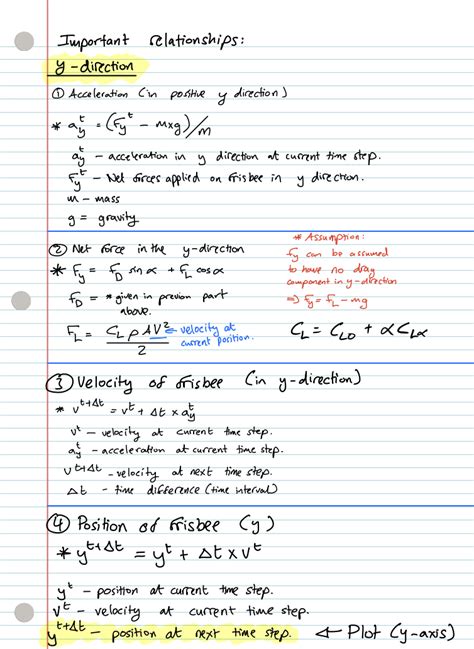 Important relationships:
y-direction
① Acceleration (in positive y direction)
* a_y^t = (F_y^t - mxg)/m
a_y^t - acceleration in y direction at current time step.
F_y^t - Net forces applied on frisbee in y direction.
m - mass
g = gravity
② Net force in the y-direction
* F_y = F_D sin α + F_L cos α
F_D = * given in previous part
above.
F_L = C_L ρ A V² / 2 ← velocity at
current position.
* Assumption:
Fy can be assumed
to have no drag
component in y-direction
⇒ F_y = F_L - mg
C_L = C_L0 + α C_Lα
③ Velocity of frisbee (in y-direction)
* v^t+Δt = v^t + Δt × a_y^t
v^t - velocity at current time step.
a_y^t - acceleration at current time step.
v^t+Δt - velocity at next time step.
Δt - time difference (time interval)
④ Position of frisbee (y)
* y^t+Δt = y^t + Δt × v^t
y^t - position at current time step.
v^t - velocity at current time step.
y^t+Δt - position at next time step. ← Plot (y-axis)